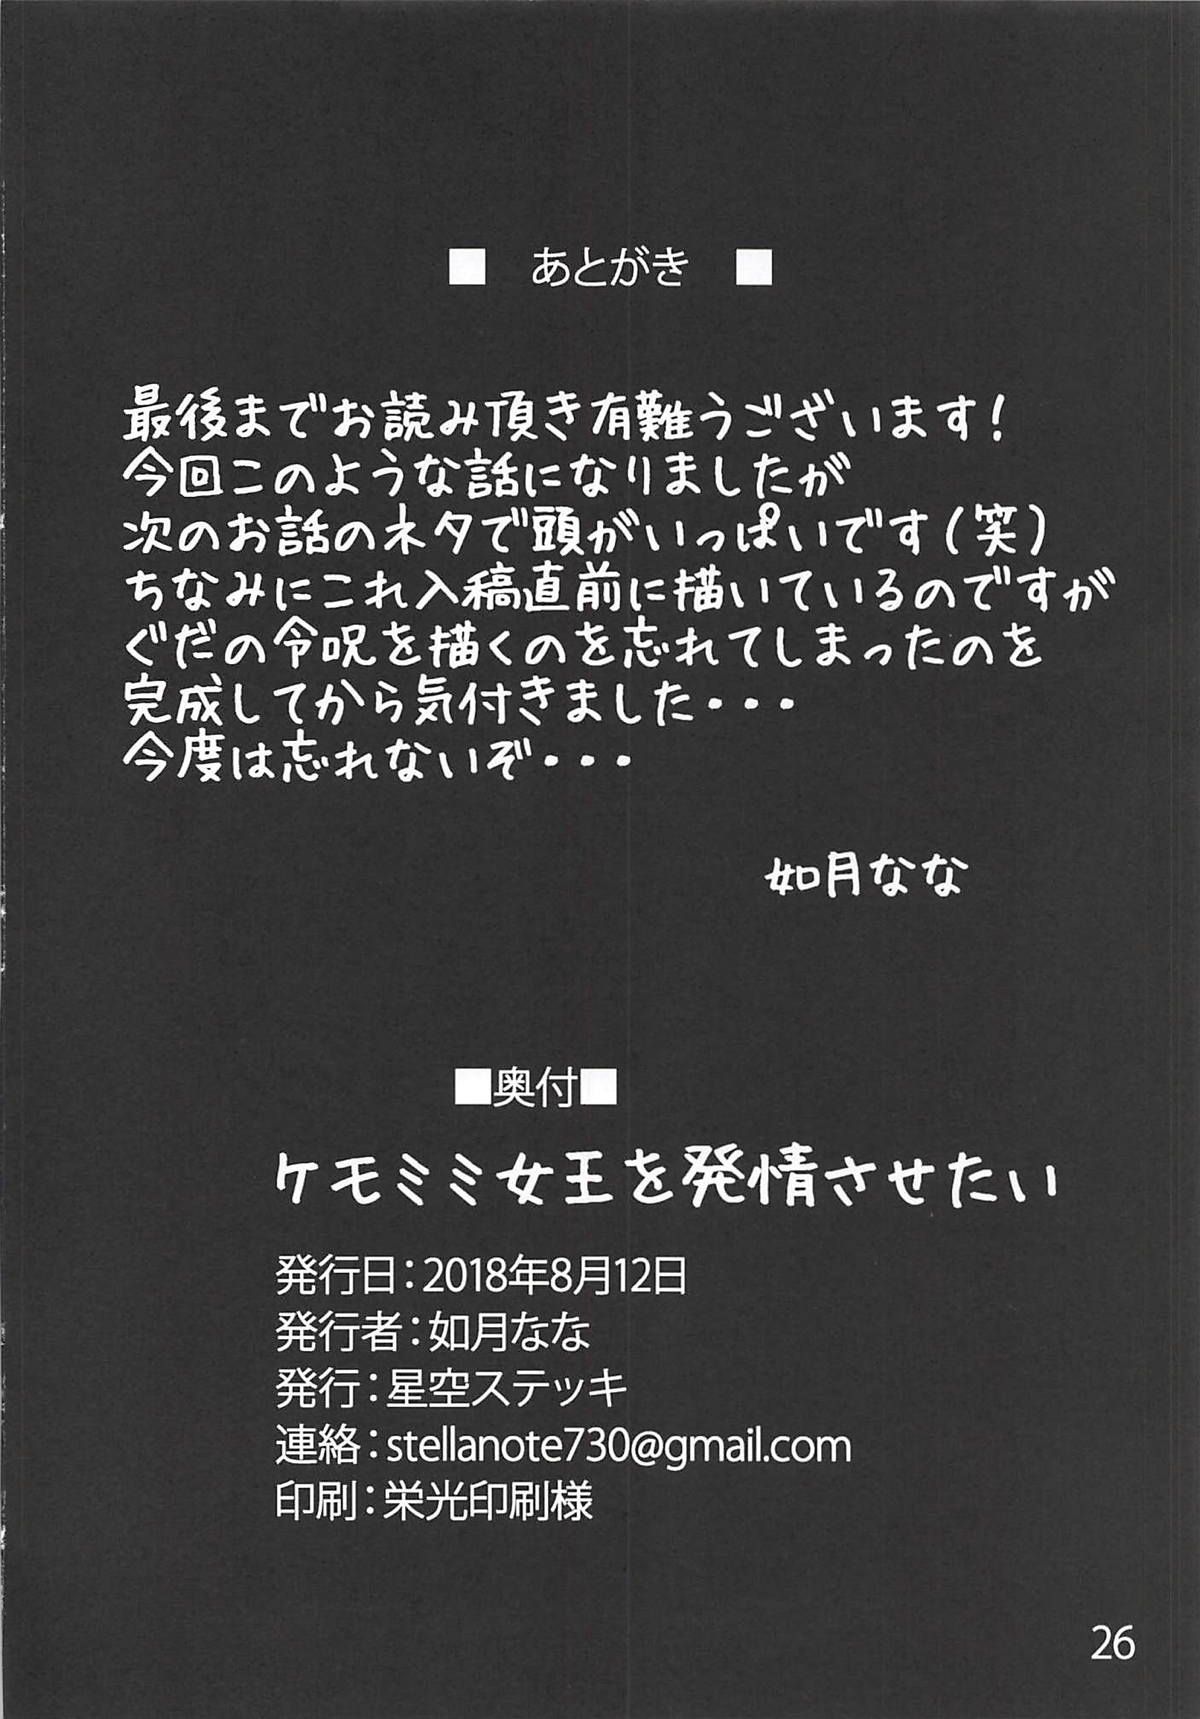 ■ あとがき ■
最後までお読み頂き有難うございます!
今回このような話になりましたが
次のお話のネタで頭がいっぱいです(笑)
ちなみにこれ入稿直前に描いているのですが
ぐだの令呪を描くのを忘れてしまったのを
完成してから気付きました・・・
今度は忘れないぞ・・・
如月なな
■奥付■
ケモミミ女王を発情させたい
発行日：2018年8月12日
発行者：如月なな
発行：星空ステッキ
連絡：stellanote730@gmail.com
印刷：栄光印刷様
26